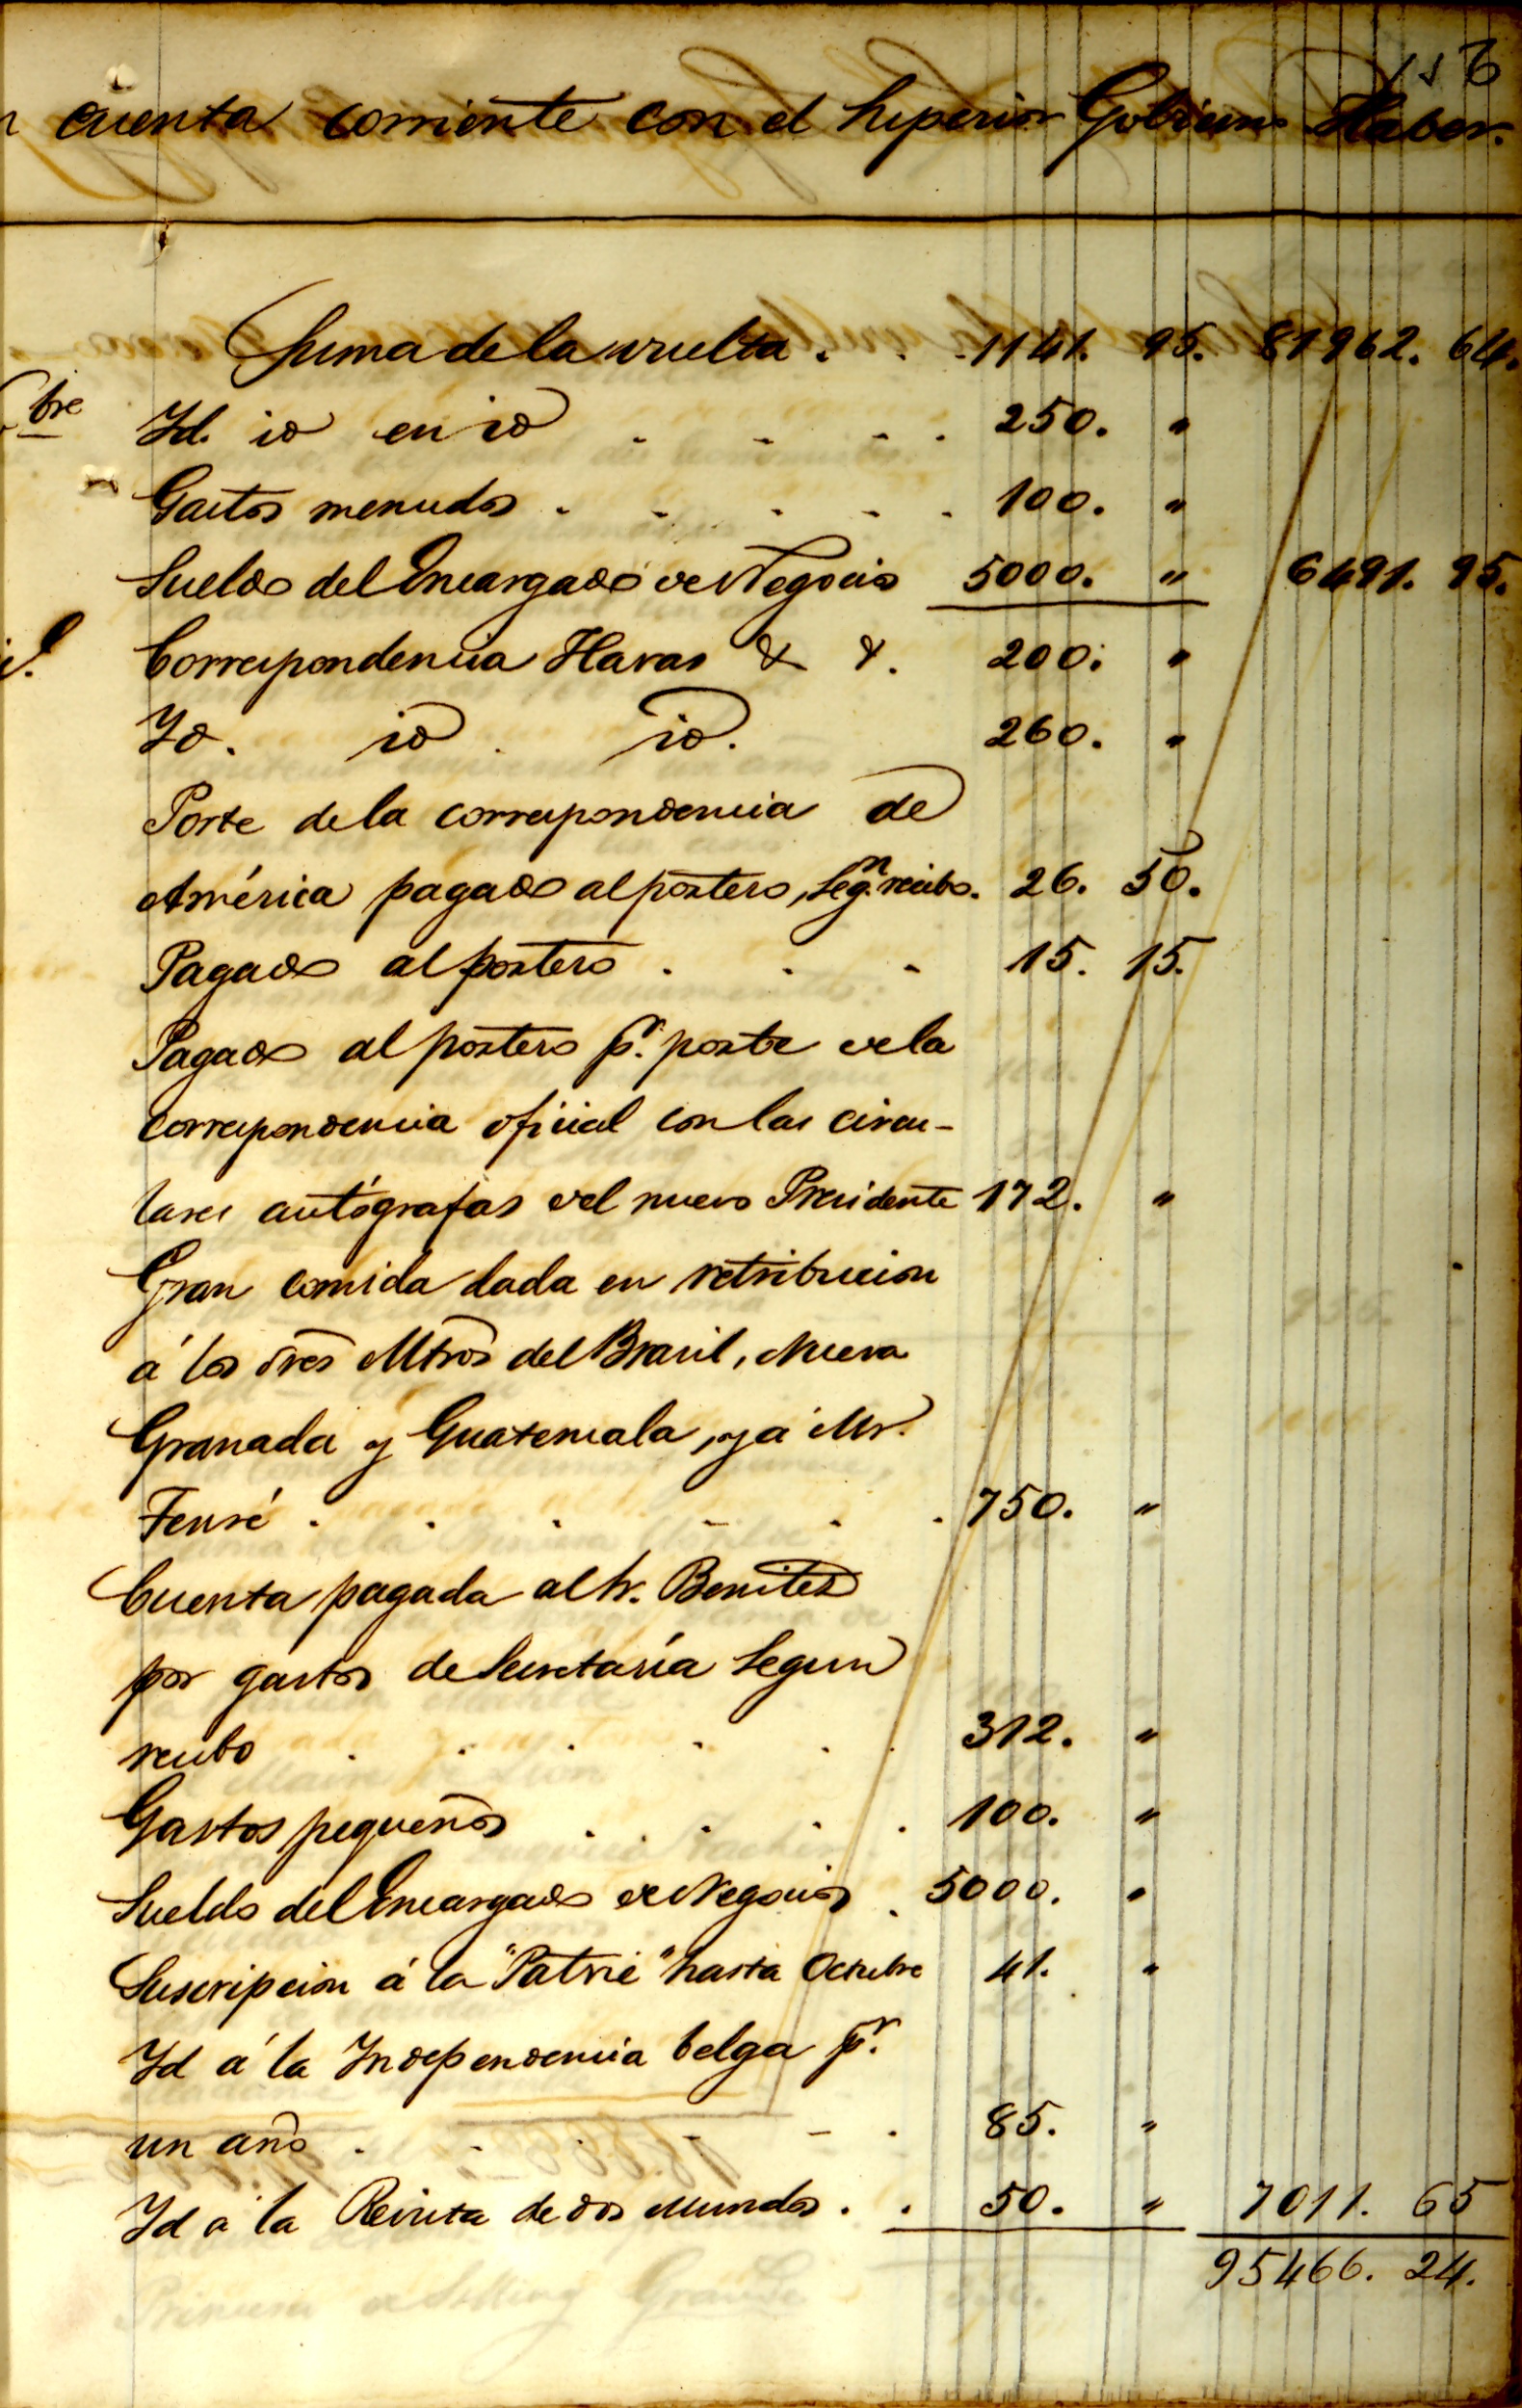 156
cuenta corriente con el Superior Gobierno Haber.
Suma de la vuelta . . . 1141. 95. 81962. 64.
bre Id. id en id . . . . 250. "
Gastos menudos . . . . . 100. "
Sueldo del Encargado de Negocios 5000. " 6491. 95.
Correspondencia Havas & &. 200. "
Id. id . id. 260. "
Porte de la correspondencia de
América pagado al portero, segn. recibo. 26. 50.
Pagado al portero . . . 15. 15.
Pagado al portero pr. porte de la
correspondencia oficial con las circu-
lares autógrafas del nuevo Presidente 172. "
Gran comida dada en retribucion
á los Sres Mtros del Brasil, Nueva
Granada y Guatemala, y á Mr.
. . . . . . 750. "
Cuenta pagada al Sr. Benites
por gastos de Secretaría segun
recibo . . . . . . 312. "
Gastos pequeños . . . . 100. "
Sueldo del Encargado de Negocios . 5000. "
Suscripcion á la "Patrie" hasta Octubre 41. "
Id á la Independencia belga pr.
un año . . . . - . 85. "
Id á la Revista de dos Mundos . . 50. " 7011. 65
95466. 24.